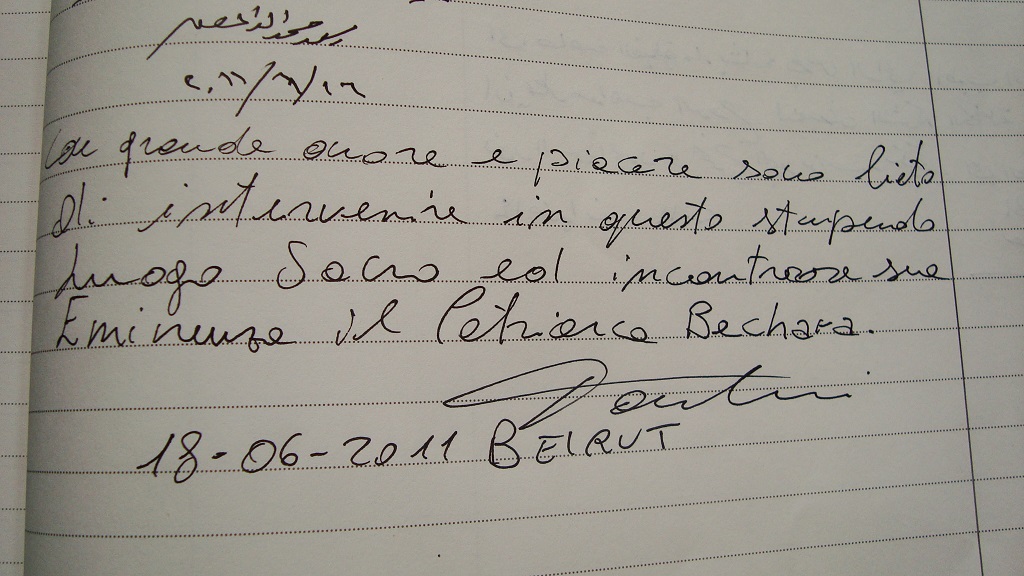 ٢٠١١/٦/١٨
Con grande onore e piacere sono lieto
di intervenire in questo stupendo
luogo Sacro ed incontrare sua
Eminenza il Patriarca Bechara.
18-06-2011 BEIRUT